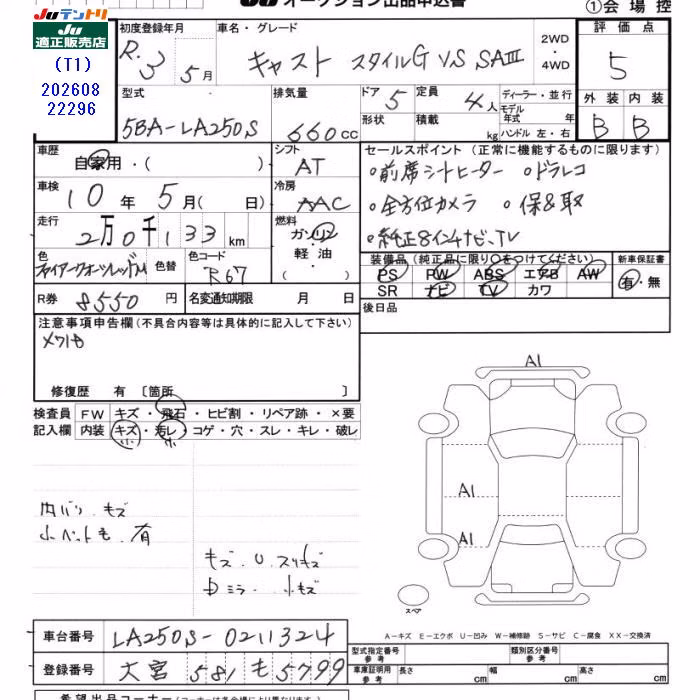 JUテントリ
JU
適正販売店
(T1)
202608
22296
オークション出品申込書
①会場控
初度登録年月
R.3 5月
車名・グレード
キャスト スタイルG VS SAⅢ
2WD
・
4WD
評価点
5
外装 内装
B B
型式
5BA-LA250S
排気量
660cc
ドア 5
形状
定員 4人
積載 kg
ディーラー・並行
モデル
年式 年
ハンドル 左・右
車歴
自家用・( )
シフト
AT
車検
10年5月( 日)
冷房
AAC
走行
2万0千133km
燃料
ガソリン
軽油
・( )
色
色替
色コード
R67
R券 8550円
名変通知期限 月 日
セールスポイント(正常に機能するものに限ります)
。前席シートヒーター 。ドラレコ
。全方位カメラ 。保&取
。純正8インチナビ、TV
装備品(純正品に限り〇をつけてください)
PS PW ABS エアB AW
SR ナビ TV カワ
新車保証書
有・無
後日品
注意事項申告欄(不具合内容等は具体的に記入して下さい)
修復歴 有 〔箇所 〕
検査員 FW キズ・飛石・ヒビ割・リペア跡・×要
記入欄 内装 キズ・汚レ・コゲ・穴・スレ・キレ・破レ
小 小
内バリ キズ
小ペット毛 有
キズ・U・スリキズ
ミラー 小キズ
A1
A1
A1
スペア
A-キズ E-エクボ U-凹み W-補修跡 S-サビ C-腐食 XX-交換済
車台番号 LA250S-0211324
登録番号 大宮 581 も 5799
型式指定番号
参考
類別区分番号
参考
車庫証明用
参考
長さ cm 幅 cm 高さ cm
希望出品コーナー(コーナーは各会場により異なります)